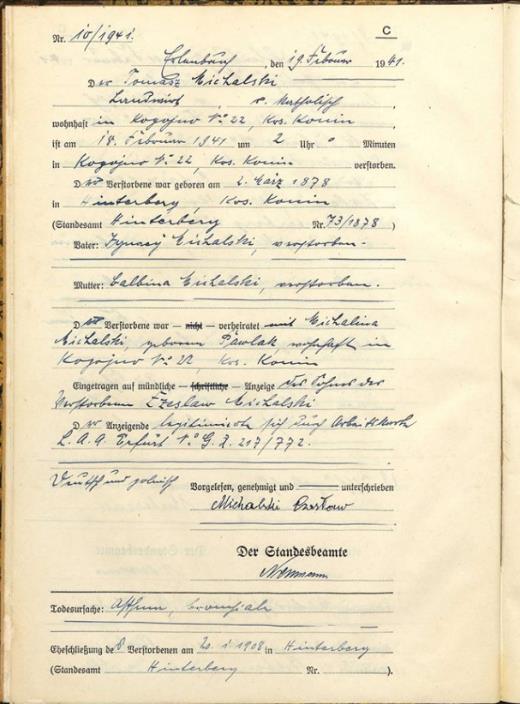 Nr. 10/1941.
C
Erlenbruch, den 19. Februar 1941.
Der Tomasz Michalski
Landwirt, r. katholisch,
wohnhaft in Kogojno No 22, Krs. Konin,
ist am 18. Februar 1941 um 2 Uhr 0 Minuten
in Kogojno No 22, Krs. Konin verstorben.
Der Verstorbene war geboren am 2. März 1878
in Hinterberg, Krs. Konin
(Standesamt Hinterberg Nr. 73/1878)
Vater: Ignacy Michalski, verstorben.
Mutter: Balbina Michalski, verstorben.
Der Verstorbene war — nicht — verheiratet mit Michalina
Michalski, geborene Pawlak wohnhaft in
Kogojno No 22 Krs. Konin
Eingetragen auf mündliche — schriftliche — Anzeige des Sohnes des
Verstorbenen Czeslaw Michalski
Der Anzeigende legitimierte sich durch Arbeitskarte
L.A.A. Erfurt No G. 2. 217/772.
Deutsch und polnisch
Vorgelesen, genehmigt und unterschrieben
Michalski Czesław
Der Standesbeamte
Todesursache: Asthma, bronchiale
Eheschließung des Verstorbenen am 20. 1. 1908 in Hinterberg
(Standesamt Hinterberg Nr. ).